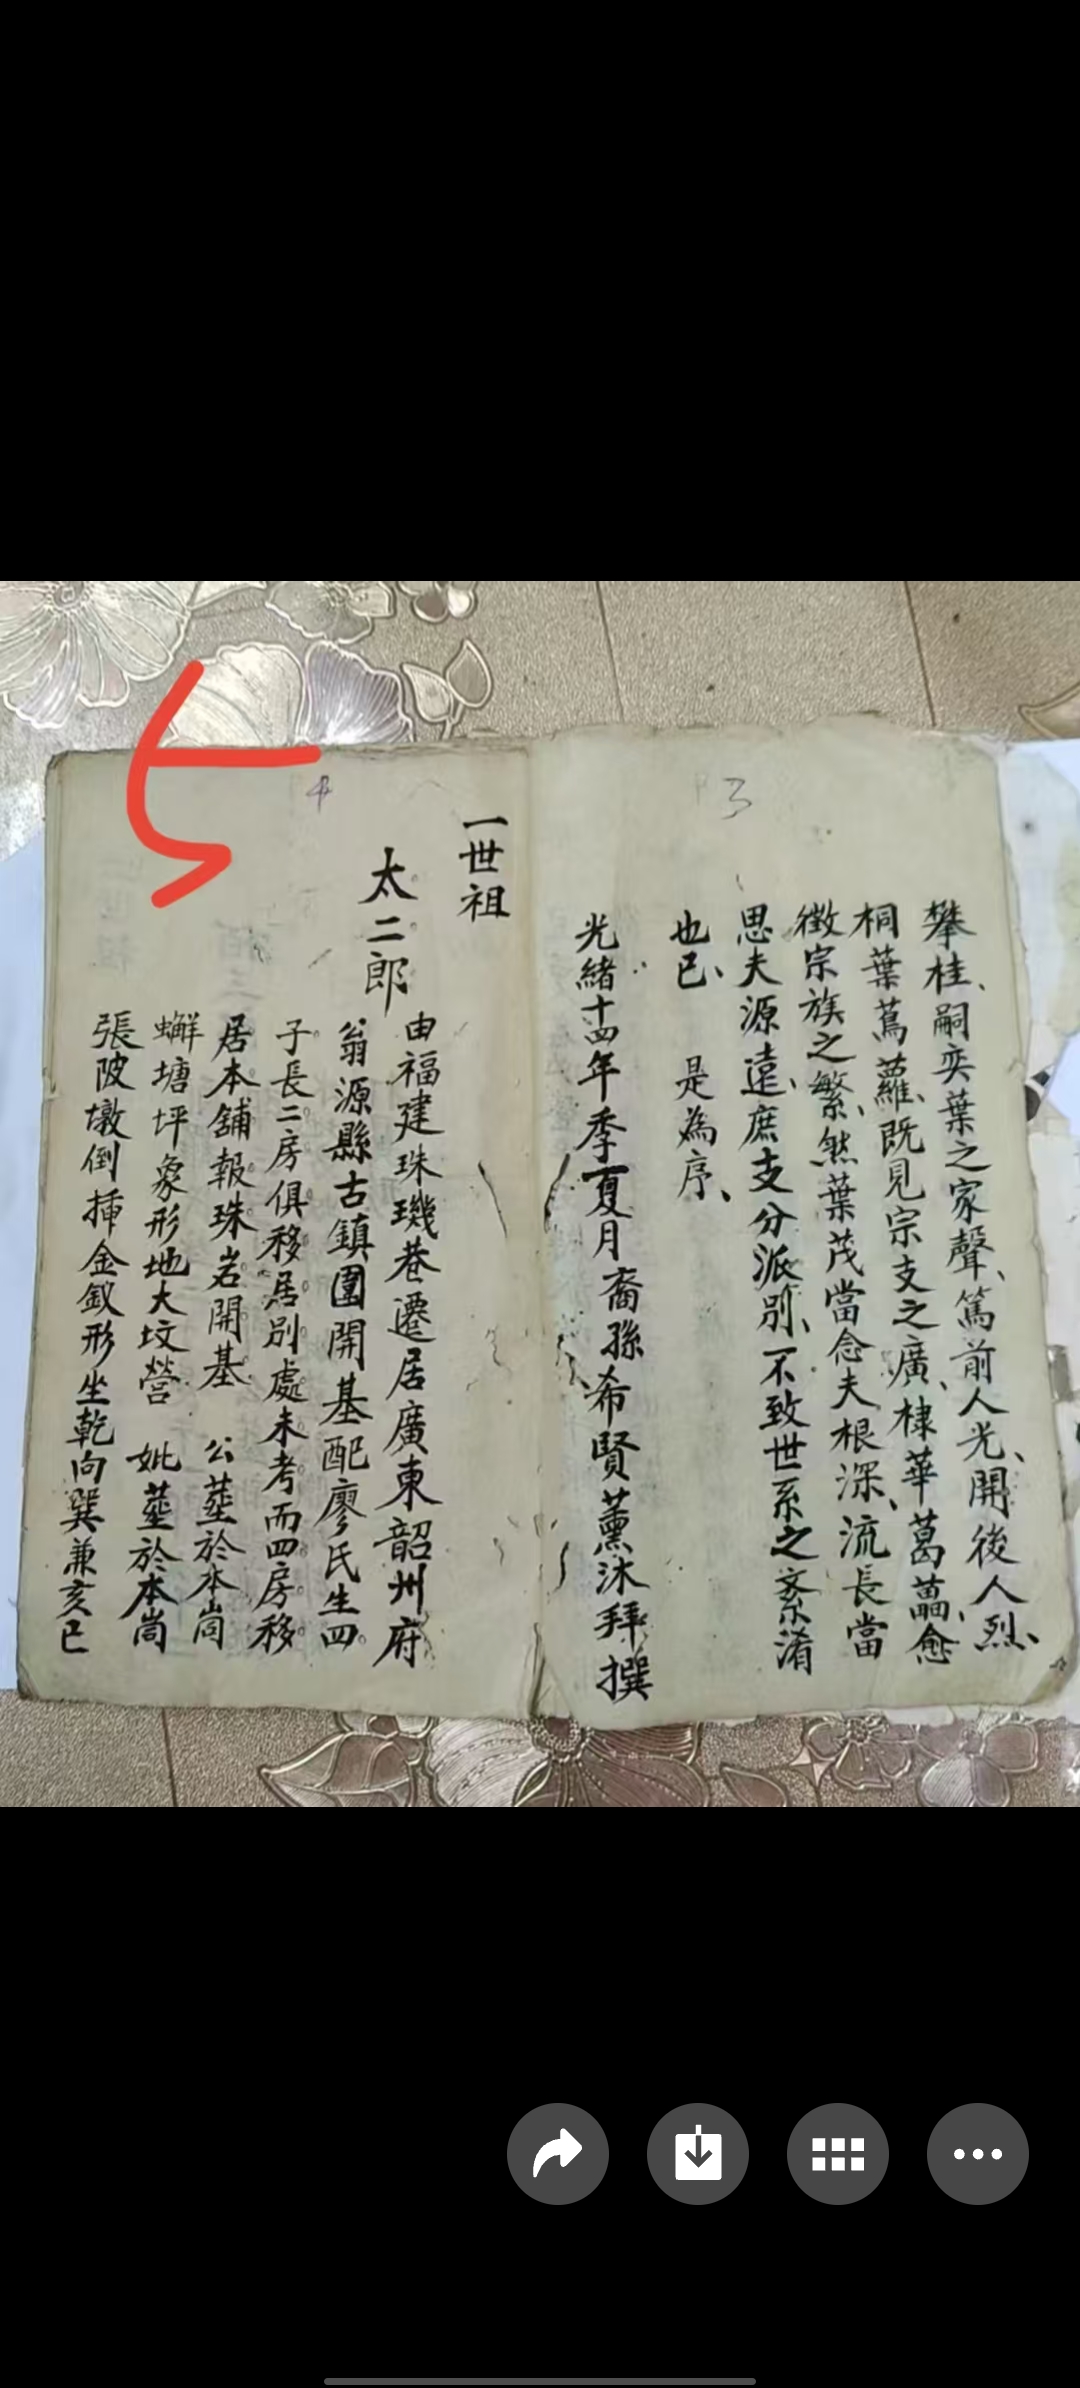 3
攀桂、嗣奕葉之家聲、篤前人光、開後人烈、
桐葉蔦蘿、既見宗支之廣、棣華葛藟、愈
徵宗族之繁、然葉茂當念夫根深、流長當
思夫源遠、庶支分派別、不致世系之紊淆
也已、 是為序、
光緒十四年季夏月裔孫希賢薰沐拜撰
4
5
一世祖
太二郎
由福建珠璣巷遷居廣東韶州府
翁源縣古鎮圍開基配廖氏生四
子長二房俱移居別處未考而四房移
居本舖報珠岩開基 公塟於本崗
蠏塘坪象形地大坟營 妣塟於本崗
張陂墩倒揷金釵形坐乾向巽兼亥巳